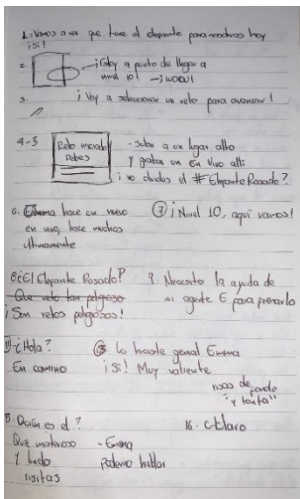 1.- Vamos a ver que tiene el elefante para nosotros hoy
¡Si!
2.
- ¡Estoy a punto de llegar a
nivel 10! - ¡wow!
3.
¡Voy a seleccionar un reto para avanzar!
4-5
Reto
- Subir a un lugar alto
y grabar un En Vivo allí
¡no olvides el #ElefanteRosado?
6. Emma hace un nuevo
en vivo, hace muchos
ultimamente
7 ¡Nivel 10, aqui vamos!
8 ¿El Elefante Rosado?
Que reto tan peligroso
¡Son retos peligrosos!
9. Necesito la ayuda de
mi agente E para pararlo
11 - ¿Hola?
En camino
Lo hiciste genial Emma
¡Si! Muy valiente
risas de fondo
"y tonta"
15 Quién es el?
Que misterioso
Y lindo
risitas
- Emma
Podemos hablar
16. - Claro